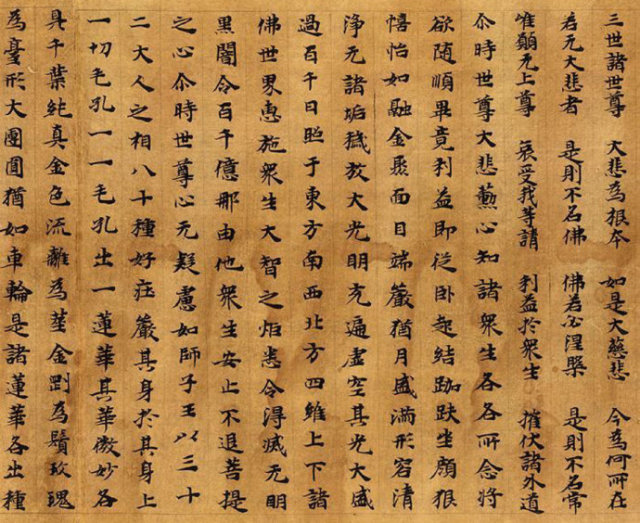 三世諸世尊　大悲為根本　如是大慈悲　今為何所在
若无大悲者　是則不名佛　佛為必涅槃　是則不名常
唯願无上尊　哀受我等請　利益於衆生　摧伏諸外道
尒時世尊大悲薰心知諸衆生各各所念將
欲随順畢竟利益即從卧起結跏趺坐顔狠
憘怡如融金聚面目端嚴猶月盛滿形容清
淨无諸垢穢放大光明充遍虚空其光大盛
過百千日照于東方南西北方四維上下諸
佛世界惠施衆生大智之炬悉令得滅无明
黑闇令百千億那由他衆生安止不退菩提
之心尒時世尊心无疑慮如師子王以三十
二大人之相八十種好莊嚴其身於其身上
一切毛孔一一毛孔出一蓮華其華微妙各
具千葉純真金色流離為莖金剛為鬚玫瑰
為臺形大團圓猶如車輪是諸蓮華各出種